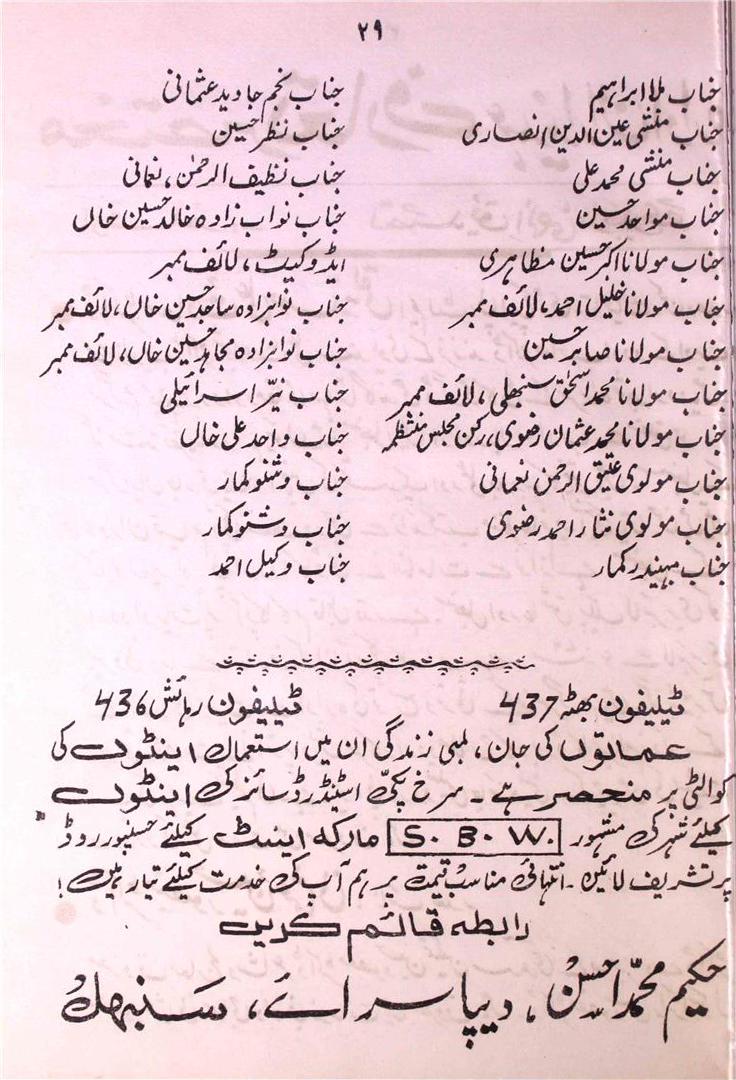 ۲۹
جناب ملا ابراہیم
جناب منشی عین الدین انصاری
جناب منشی محمد علی
جناب مواحد حسین
جناب مولانا اکبر حسین مظاہری
جناب مولانا خلیل احمد، لائف ممبر
جناب مولانا صابر حسین
جناب مولانا محمد اسحٰق سنبھلی، لائف ممبر
جناب مولانا محمد عثمان رضوی، رکن مجلس منتظمہ
جناب مولوی عتیق الرحمن نعمانی
جناب مولوی نثار احمد رضوی
جناب مہیندر کمار
جناب نجم جاوید عثمانی
جناب نظر حسین
جناب نظیف الرحمٰن، نعمانی
جناب نواب زادہ خالد حسین خاں
ایڈوکیٹ، لائف ممبر
جناب نوابزادہ ساجد حسین خاں، لائف ممبر
جناب نوابزادہ مجاہد حسین خاں، لائف ممبر
جناب نیّر اسرائیلی
جناب واحد علی خاں
جناب وشنو کمار
جناب وشنو کمار
جناب وکیل احمد
ٹیلیفون بھٹہ 437 ٹیلیفون رہائش 436
عمارتوں کی جان، لمبی زندگی ان میں استعمال اینٹوں کی
کوالٹی پر منحصر ہے۔ سرخ پکی اسٹینڈرڈ سائز کی اینٹوں
کیلئے شہر کی مشہور S. B. W. مارکہ اینٹ کیلئے حسنپور روڈ
پر تشریف لائیں۔ انتہائی مناسب قیمت پر ہم آپ کی خدمت کیلئے تیار ہیں!
رابطہ قائم کریں
حکیم محمّد احسن، دیپا سرائے، سنبھل